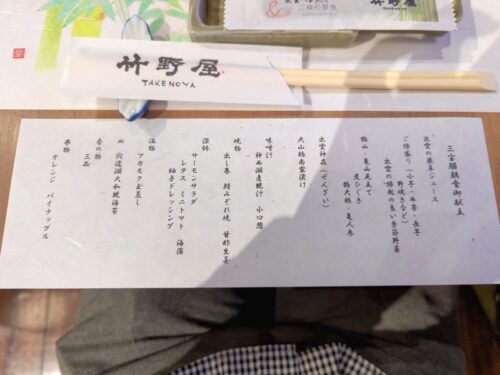 竹野屋
竹野屋
TAKENOYA
三宝膳朝食御献立
出雲の薬草ジュース
野焼きなど)
出雲の縁起の良い季節野菜
鶴山・亀山見立て
煮ひじき
鶴大根・亀人参
出雲神在(ぜんざい)
大山鶏南蛮漬け
味噌汁
神西湖産蜆汁 小口葱
焼物
出し巻 鯖みぞれ焼 甘酢生姜
深鉢
サーモンサラダ
レタス ミニトマト 海藻
柚子ドレッシング
温物
アカモク玉蒸し
皿 宍道湖大和蜆海苔
香の物
三品
果物
オレンジ パイナップル